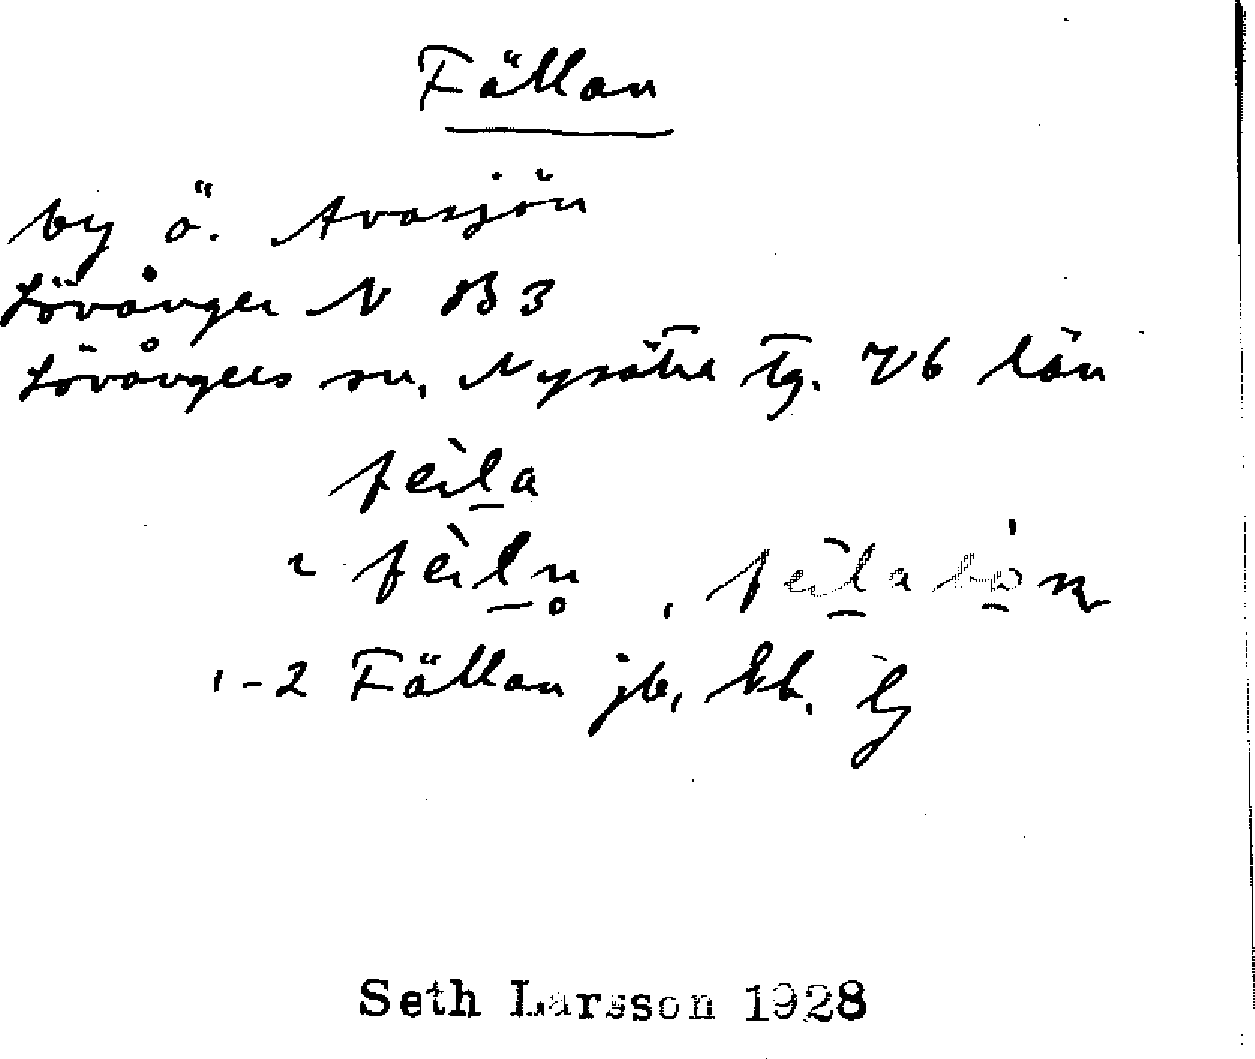 Fällan
by ö. Avasjön
Lövånger N B3
Lövångers sn, Nysätra tg. Vb län
fèila
fèiln̥, fèilabön
1-2 Fällan jb, kb.
Seth Larsson 1928